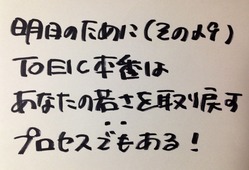 明日のために（その29）
TOEIC本番は
あなたの若さを取り戻す
プロセスでもある！